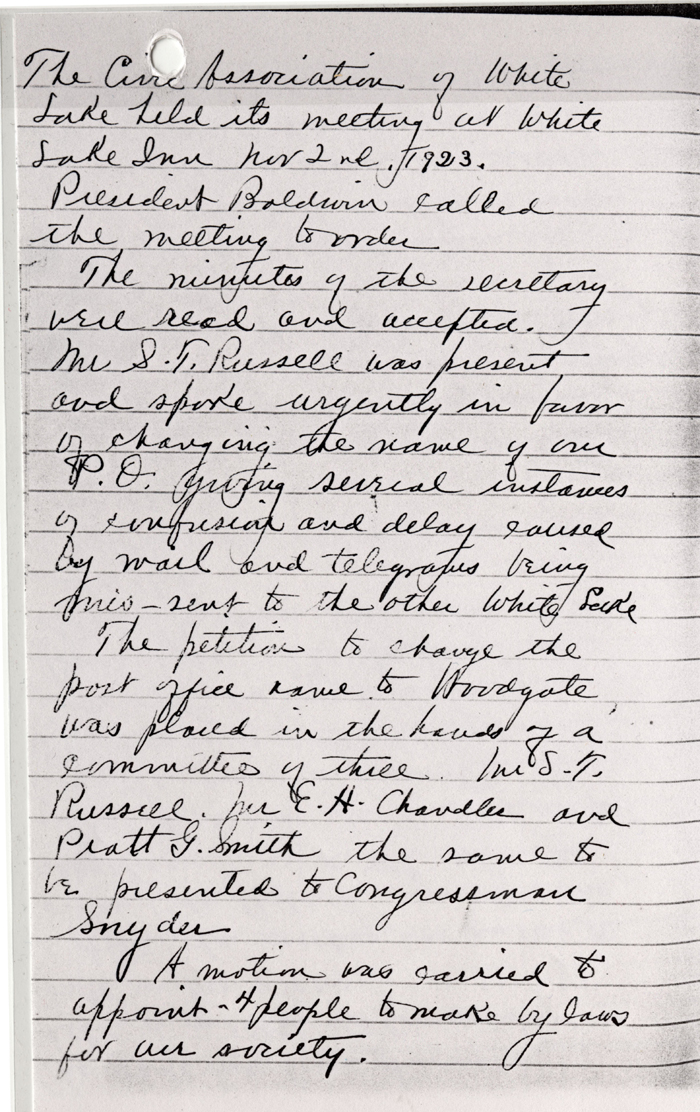 The Civic Association of White
Lake held its meeting at White
Lake Inn Nov 2nd, 1923.
President Baldwin called
the meeting to order
The minutes of the secretary
were read and accepted.
Mr S.T. Russell was present
and spoke urgently in favor
of changing the name of our
P.O. giving several instances
of confusion and delay caused
by mail and telegrams being
mis-sent to the other White Lake
The petition to change the
post office name to Woodgate
was placed in the hands of a
committee of three. Mr S.T.
Russell. Mr E.H. Chandler and
Pratt G. Smith the same to
be presented to Congressman
Snyder
A motion was carried to
appoint-4 people to make by laws
for our society.